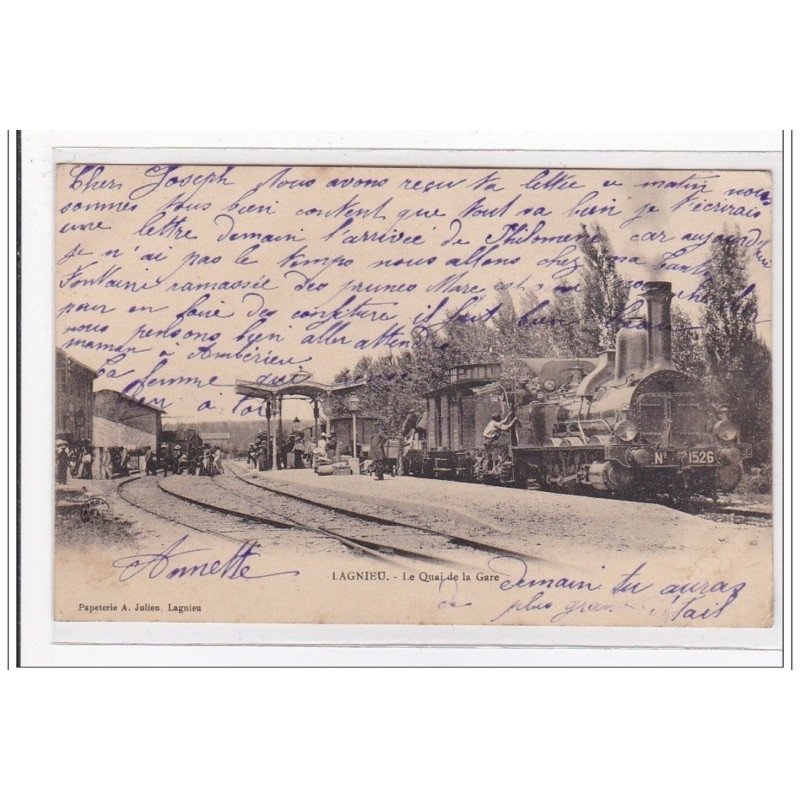 Cher Joseph Nous avons reçu ta lettre ce matin nous
sommes tous bien content que tout va bien je t'écrirais
une lettre demain l'arrivée de Philomène car aujourd'hui
je n'ai pas le temps nous allons chez ma tante
Fontaine ramassée des prunes Marc est
pour en faire des confiture il fait bien beau
nous pensons bien aller attendre
maman à Ambérieu
ta femme qui
à toi
Annette
demain tu auras
de plus grand détail
Nº 1526
LAGNIEU. - Le Quai de la Gare
Papeterie A. Julien, Lagnieu